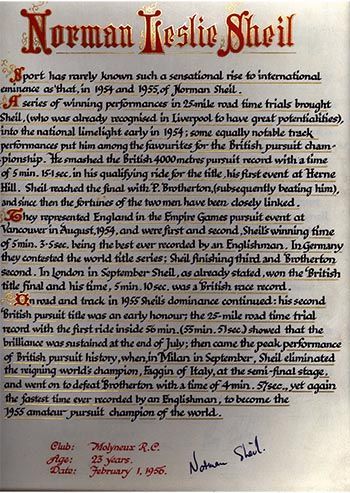 Norman Leslie Sheil
Sport has rarely known such a sensational rise to international
eminence as that, in 1954 and 1955, of Norman Sheil.
A series of winning performances in 25 mile road time trials brought
Sheil, (who was already recognised in Liverpool to have great potentialities),
into the national limelight early in 1954; some equally notable track
performances put him among the favourites for the British pursuit cham-
pionship. He smashed the British 4000 metres pursuit record with a time
of 5 min. 15·1 sec. in his qualifying ride for the title, his first event at Herne
Hill. Sheil reached the final with P. Brotherton, (subsequently beating him),
and since then the fortunes of the two men have been closely linked.
They represented England in the Empire Games pursuit event at
Vancouver in August, 1954, and were first and second, Sheil's winning time
of 5 min. 3·5 sec. being the best ever recorded by an Englishman. In Germany
they contested the world title series; Sheil finishing third and Brotherton
second. In London in September Sheil, as already stated, won the British
title final and his time, 5 min. 10 sec. was a British race record.
On road and track in 1955 Sheil's dominance continued: his second
British pursuit title was an early honour; the 25-mile road time trial
record with the first ride inside 56 min. (55 min. 51 sec.) showed that the
brilliance was sustained at the end of July; then came the peak performance
of British pursuit history, when, in Milan in September, Sheil eliminated
the reigning world's champion, Faggin of Italy, at the semi-final stage,
and went on to defeat Brotherton with a time of 4 min. 57 sec., yet again
the fastest time ever recorded by an Englishman, to become the
1955 amateur pursuit champion of the world.
Club: Molyneux R.C.
Age: 23 years.
Date: February 1, 1956.
Norman Sheil.